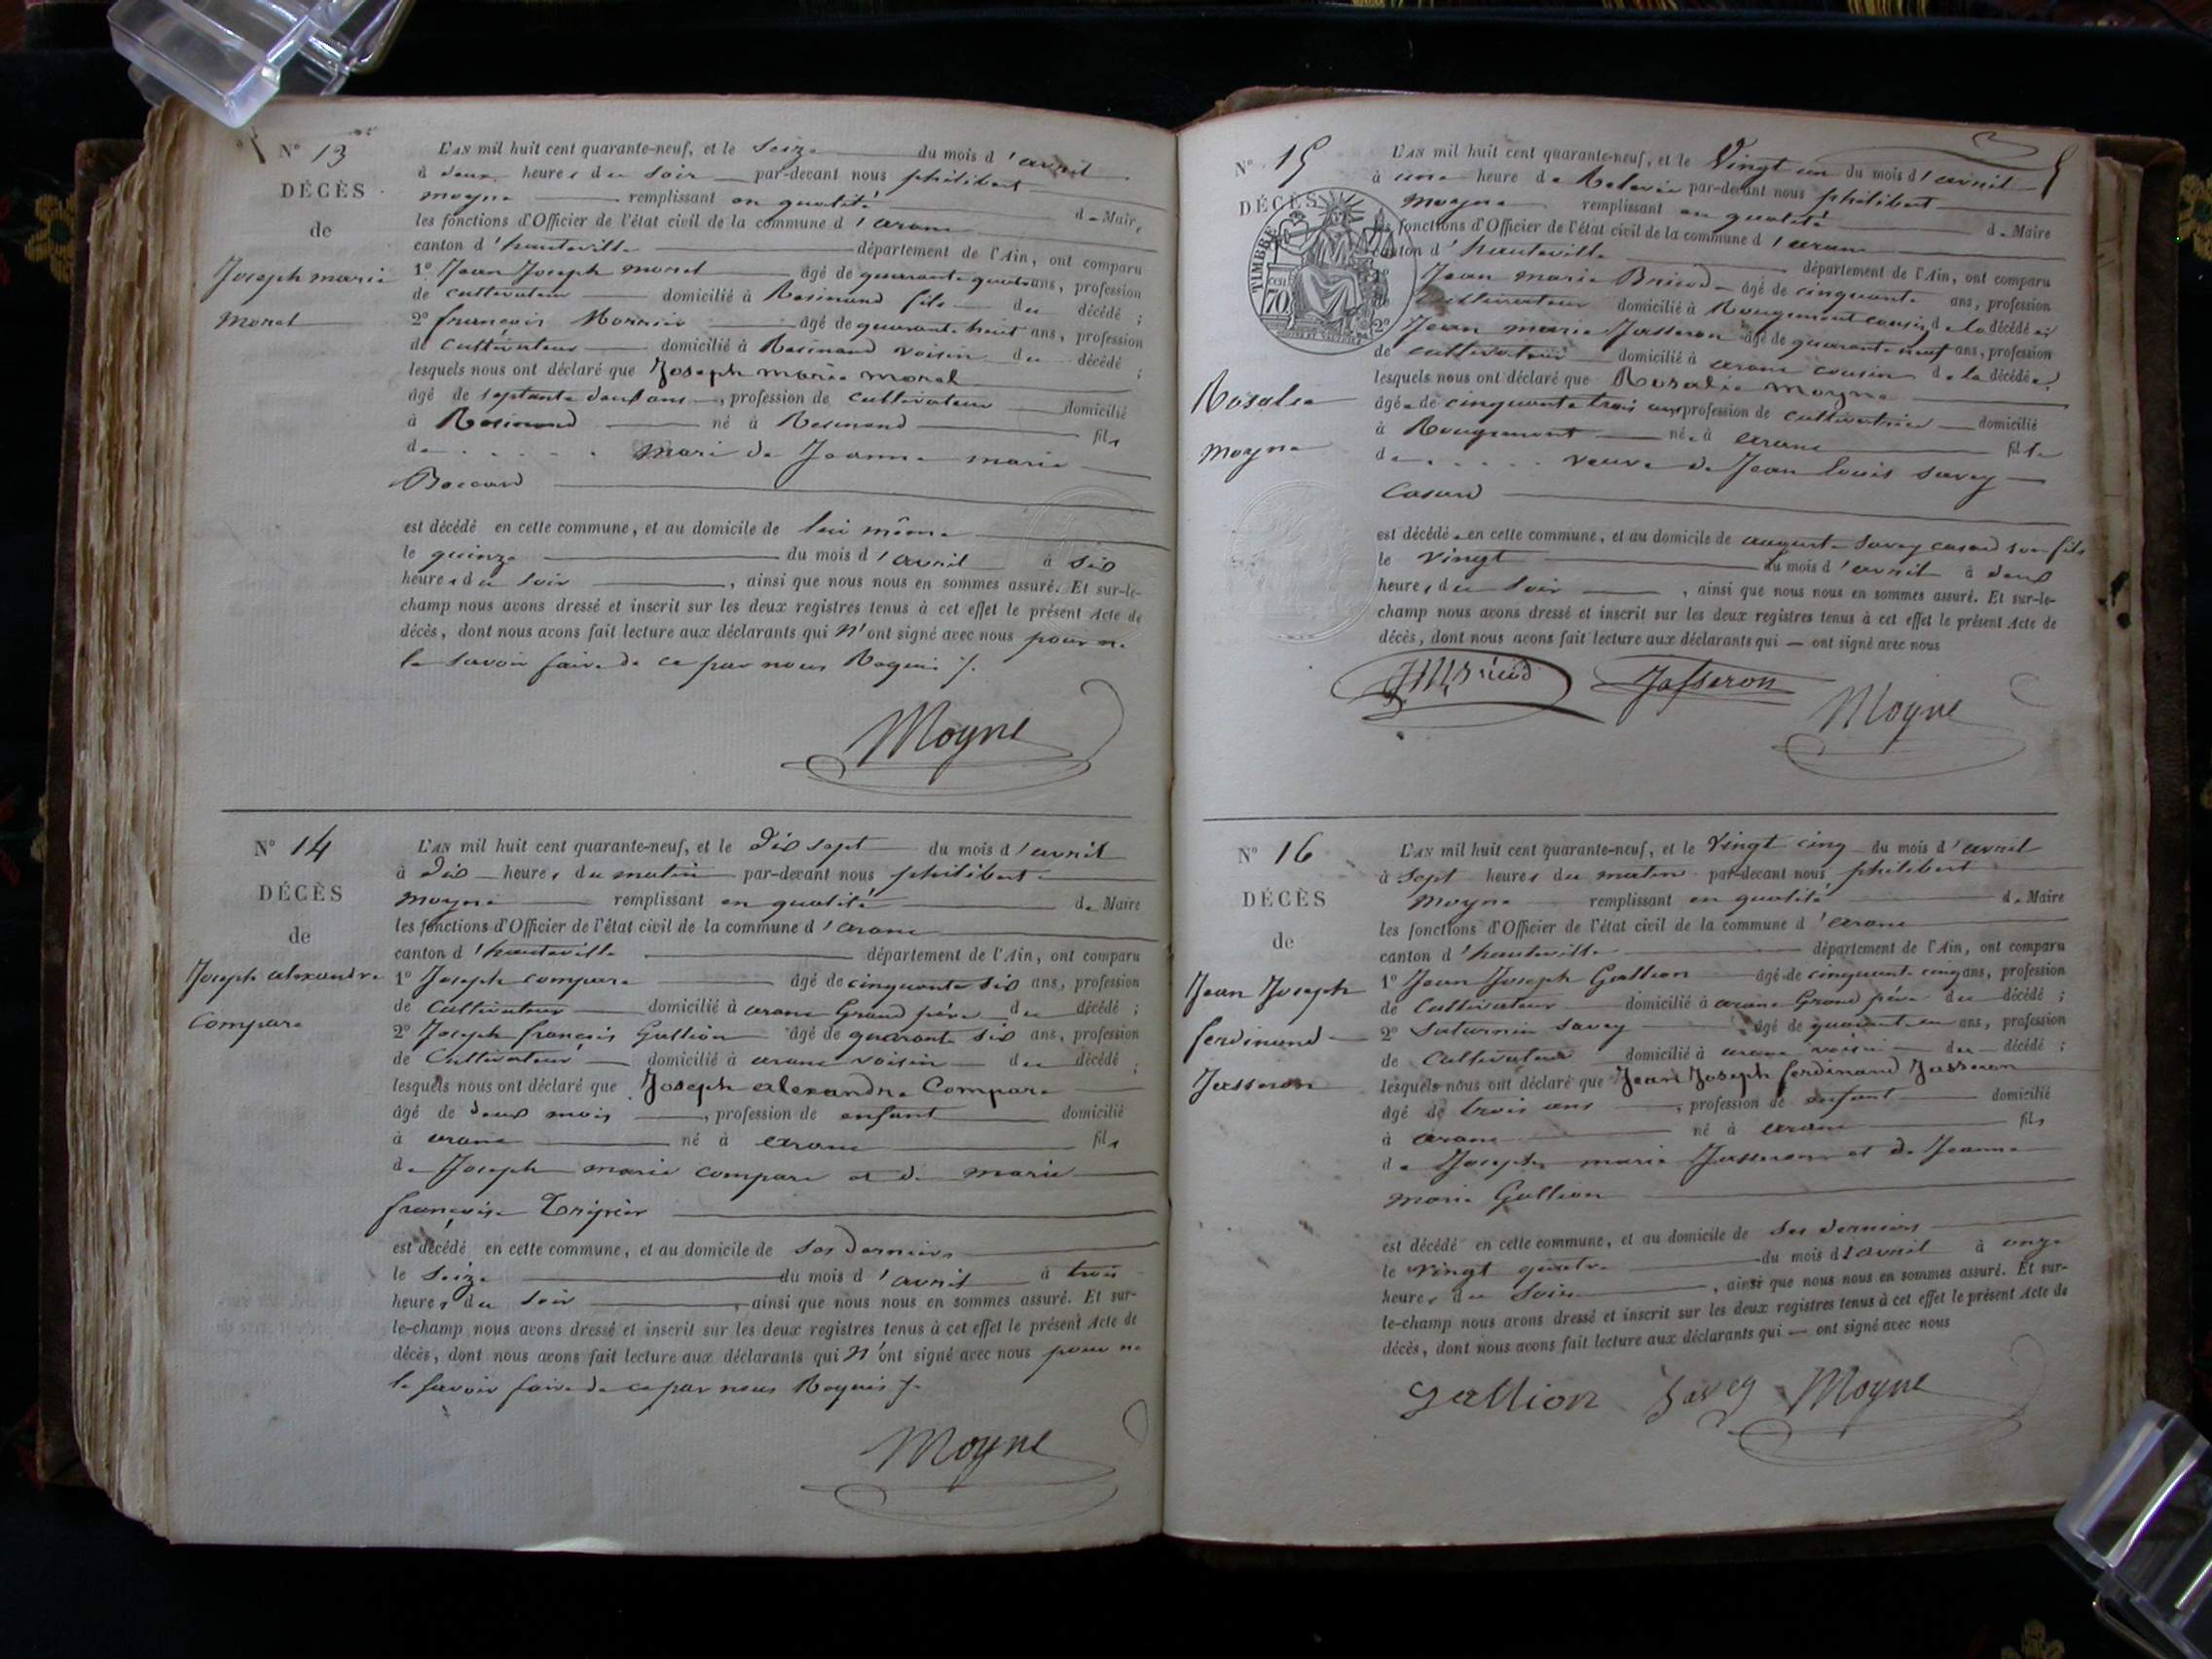 N° 13
DÉCÈS
de
Joseph marie
Morel
L'AN mil huit cent quarante-neuf, et le seize du mois d'avril
à deux heures du soir par-devant nous philibert
moyne remplissant en qualité de Maire
les fonctions d'Officier de l'état civil de la commune d'aranc
canton d'hauteville département de l'Ain, ont comparu
1° Jean Joseph morel âgé de quarante quatre ans, profession
de cultivateur domicilié à Resinand fils du décédé ;
2° françois âgé de quarante huit ans, profession
de cultivateur domicilié à Resinand voisin du décédé ;
lesquels nous ont déclaré que Joseph marie morel
âgé de septante deux ans, profession de cultivateur domicilié
à Resinand né à Resinand fils
de . . . . . mari de Jeanne marie
Boccard
est décédé en cette commune, et au domicile de lui même
le quinze du mois d'avril à six
heures du soir, ainsi que nous nous en sommes assuré. Et sur-le-
champ nous avons dressé et inscrit sur les deux registres tenus à cet effet le présent Acte de
décès, dont nous avons fait lecture aux déclarants qui n'ont signé avec nous pour ne
le savoir faire de ce par nous Requis /.
Moyne
N° 14
DÉCÈS
de
Joseph alexandre
Compare
L'AN mil huit cent quarante-neuf, et le dix sept du mois d'avril
à dix heures du matin par-devant nous philibert
moyne remplissant en qualité de Maire
les fonctions d'Officier de l'état civil de la commune d'aranc
canton d'hauteville département de l'Ain, ont comparu
1° Joseph compare âgé de cinquante six ans, profession
de cultivateur domicilié à aranc Grand père du décédé ;
2° Joseph françois Gallion âgé de quarante six ans, profession
de Cultivateur domicilié à aranc voisin du décédé ;
lesquels nous ont déclaré que Joseph alexandre Compare
âgé de deux mois, profession de enfant domicilié
à aranc né à aranc fils
de Joseph marie compare et de marie
françoise Tripier
est décédé en cette commune, et au domicile de ses derniers
le seize du mois d'avril à trois
heures du soir, ainsi que nous nous en sommes assuré. Et sur-
le-champ nous avons dressé et inscrit sur les deux registres tenus à cet effet le présent Acte de
décès, dont nous avons fait lecture aux déclarants qui n'ont signé avec nous pour ne
le savoir faire de ce par nous Requis /.
Moyne
N° 15
DÉCÈS
TIMBRE
70
Rosalie
moyne
L'AN mil huit cent quarante-neuf, et le Vingt un du mois d'avril
à une heure de Relevée par-devant nous philibert
Moyne remplissant en qualité de Maire
les fonctions d'Officier de l'état civil de la commune d'aranc
canton d'hauteville département de l'Ain, ont comparu
1° Jean marie Bricod âgé de cinquante ans, profession
de cultivateur domicilié à Rougemont cousin de la décédée ;
2° Jean marie Jasseron âgé de quarante neuf ans, profession
de cultivateur domicilié à aranc cousin de la décédée ;
lesquels nous ont déclaré que Rosalie moyne
âgée de cinquante trois ans profession de cultivatrice domicilié
à Rougemont née à aranc fille
de . . . . . veuve de Jean Louis Savey
Casard
est décédée en cette commune, et au domicile de auguste Savey casard son fils
le vingt du mois d'avril à deux
heures du soir, ainsi que nous nous en sommes assuré. Et sur-le-
champ nous avons dressé et inscrit sur les deux registres tenus à cet effet le présent Acte de
décès, dont nous avons fait lecture aux déclarants qui — ont signé avec nous
JMBricod Jasseron Moyne
N° 16
DÉCÈS
de
Jean Joseph
ferdinand
Jasseron
L'AN mil huit cent quarante-neuf, et le Vingt cinq du mois d'avril
à sept heures du matin par-devant nous philibert
Moyne remplissant en qualité de Maire
les fonctions d'Officier de l'état civil de la commune d'aranc
canton d'hauteville département de l'Ain, ont comparu
1° Jean Joseph Gallion âgé de cinquante cinq ans, profession
de Cultivateur domicilié à aranc Grand père du décédé ;
2° Saturnin Savey âgé de quarante un ans, profession
de Cultivateur domicilié à aranc voisin du décédé ;
lesquels nous ont déclaré que Jean Joseph ferdinand Jasseron
âgé de trois ans, profession de enfant domicilié
à aranc né à aranc fils
de Joseph marie Jasseron et de Jeanne
marie Gallion
est décédé en cette commune, et au domicile de ses derniers
le vingt quatre du mois d'avril à onze
heures du soir, ainsi que nous nous en sommes assuré. Et sur-
le-champ nous avons dressé et inscrit sur les deux registres tenus à cet effet le présent Acte de
décès, dont nous avons fait lecture aux déclarants qui — ont signé avec nous
Gallion Savey Moyne